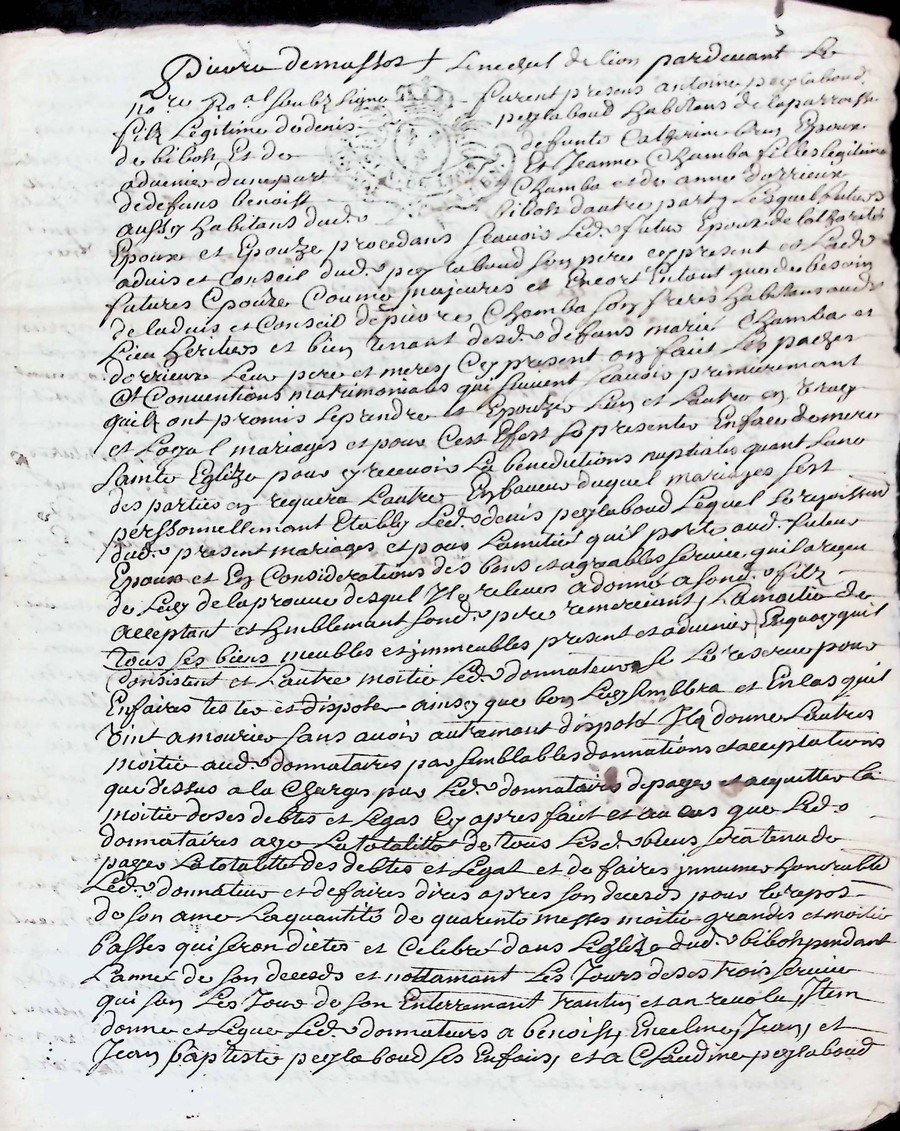 pardevant Le
no.re Ro.al Soubz Signe furent presens antoine peylaboud
filz Legitime de denis peylaboud habitans de la parroisse
de bibost Et de defunte Catherine brun Epoux
advenir dune part Et Jeanne Chamba fille legitime
de defuns benoist Chamba et de anne dorrieux
aussy habitans dud. bibost dautre part, Lesquel futurs
Epoux et Epouze procedans scavoir Led. futur Epoux de Lothorité
advis et Conseil dud. peylaboud son pere cy present et Lad.
futures Epouze Comme majeures et Encort Entant que de besoin
de ladvis et Conseil de pierre Chamba son freres habitans aud.
Lieu heritiers et bien tenant desd. defuns mariés Chamba et
dorrieux Leur pere et meres Cy present on fait Les pactes
Et Conventions matrimoniales qui suivent scavoir premierement
quilz ont promis se prendre et Epouzer Lun et Lautre en vray
et Loyal mariages et pour C'est Efest se presenter En face de mere
sainte Eglize pour y recevoir La benedictions nuptiales quant Lune
des parties en requera Lautre En faveur duquel mariages sest
perssonnellemant Etably Led. denis peylaboud Lequel se rejouissend
dud. present mariages et pour Lamitié quil porte aud. futeur
Epoux et En Considerations des bons et agreables service quil a reçeu
de Luy de la preuve desquel Il Le releve a donné a sond. filz
acceptant et humblemant sond. pere remerciant, La moitié de
Tous ses biens meubles et immeubles present et advenir En quoy quil
Consistent et Lautre moitié Led. donnateur se Le reserve pour
En faires tester et disposer ainsy que bon Luy semblera et En Cas quil
vint a mourir sans avoir autremant disposé Il a donné Lautres
moitié aud. donnataires par semblables donnations et acceptations
que dessus a la Charges par Led. donnataires de payer et acquitter La
moitié de ses debtes et Legas Cy apres fait et au cas que Led.
donnataires aye La totallité de tous Lesd. biens sera tenu de
payer La totallité des debtes et Legat et de faires inhumer honorablt
Led. donnateur et de faires dires apres son deceds pour Le repos
de son ame La quantité de quarente messes moitié grandes et moitié
basses qui seron diètes et Celebré dans Leglize dud. bibost pendant
Lanné de son deceds et nottamant Les Jours de ses trois service
qui son Les Jour de son Enterremant trantin et an revolu, Item
donne et Legue Led. donnateurs a benoist, Jean, et
Jean baptiste peylaboud ses Enfans, et a Claudine peylaboud